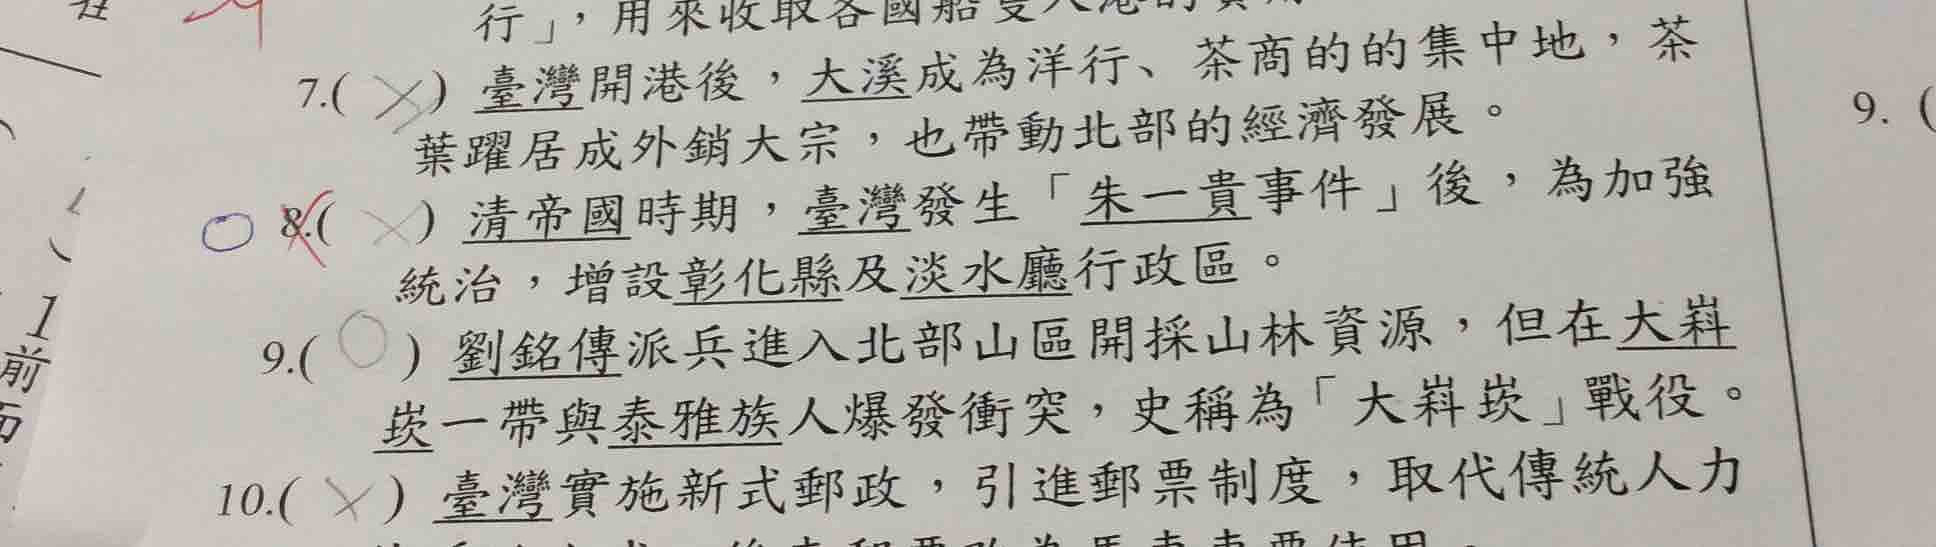 行」，用來收取各國船隻入港的費用
7.( ×) 臺灣開港後，大溪成為洋行、茶商的的集中地，茶
葉躍居成外銷大宗，也帶動北部的經濟發展。
8.( × ) 清帝國時期，臺灣發生「朱一貴事件」後，為加強
統治，增設彰化縣及淡水廳行政區。
9.( ○ ) 劉銘傳派兵進入北部山區開採山林資源，但在大嵙
崁一帶與泰雅族人爆發衝突，史稱為「大嵙崁」戰役。
10.( × ) 臺灣實施新式郵政，引進郵票制度，取代傳統人力
1
前
9. (